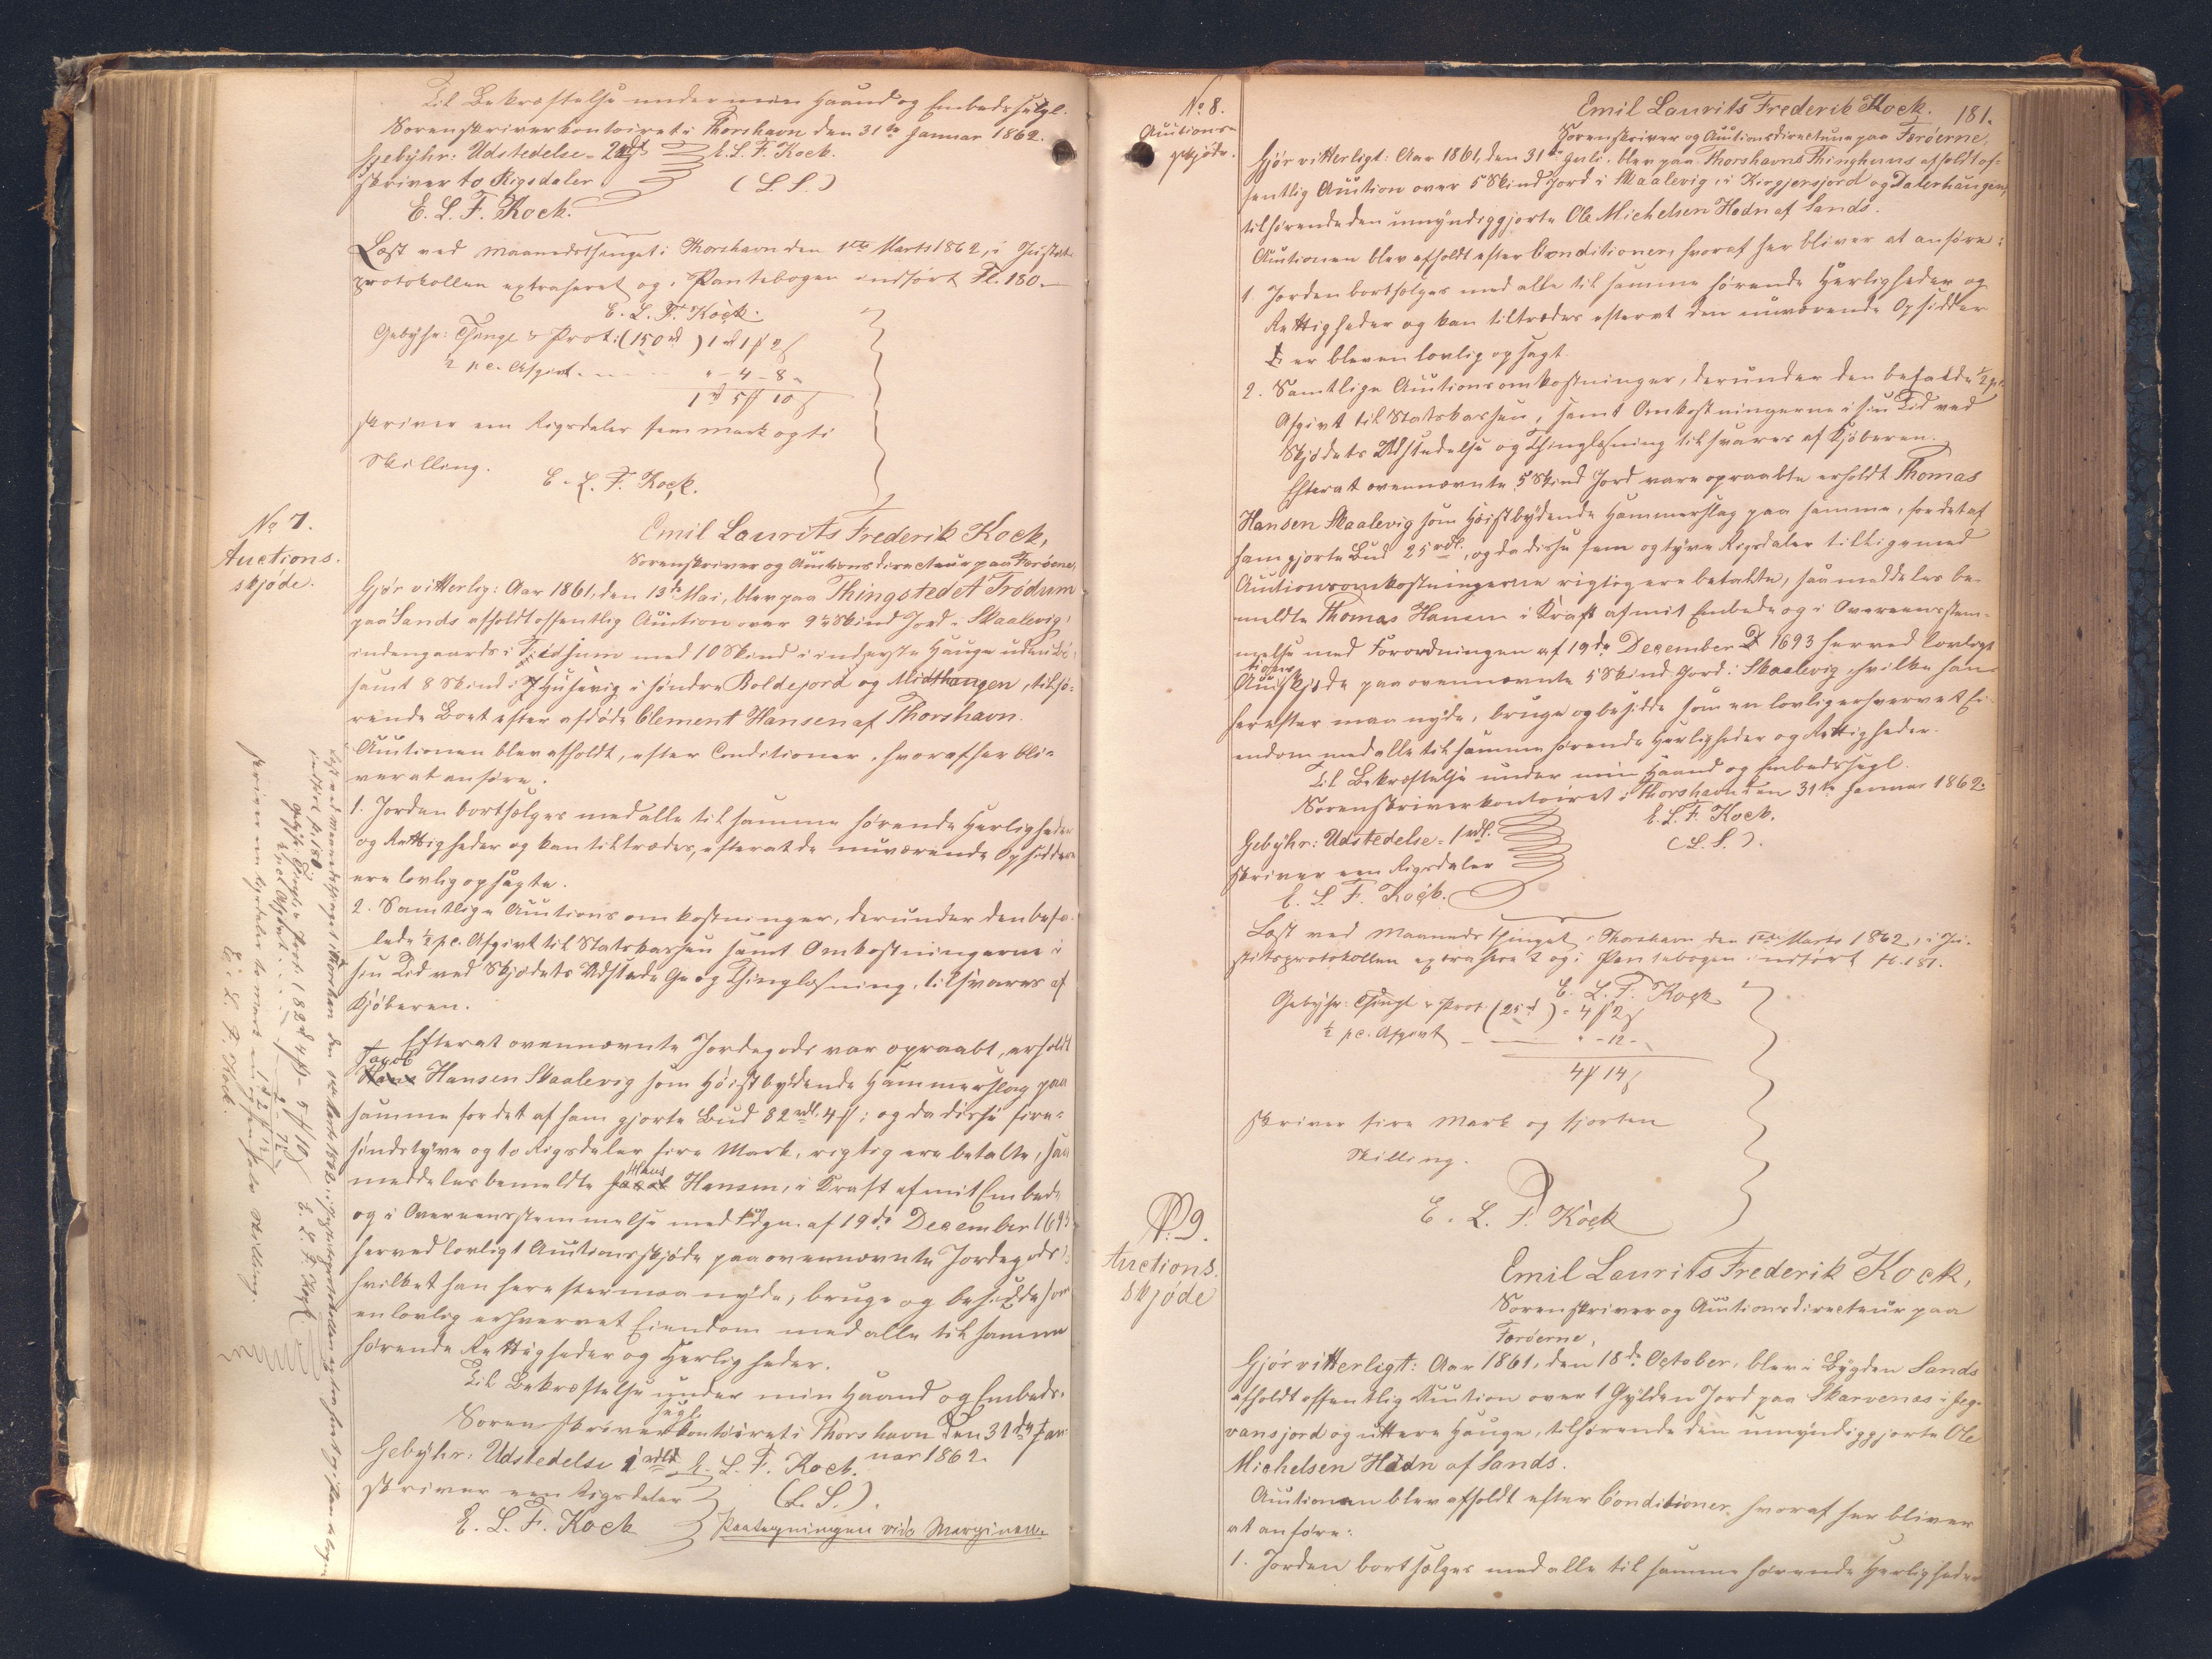 Til Bekræftelse under min Haand og Embedssegl.
Sorenskriverkontoiret i Thorshavn den 31te Januar 1862.
Gebyhr: Udstedelse - 2 rdl E. L. F. Kock.
skriver to Rigsdaler (L. S.)
E. L. F. Kock.
Læst ved Maanedsthinget i Thorshavn den 1ste Marts 1862, i Justits-
protokollen extraheret og i Pantebogen indført Fl. 180.
E. L. F. Kock.
Gebyhr: Thingl & Prot: (150 rd) 1 rd 1 ß 2 s
½ p.c. Afgivt - - - " - 4 - 8 "
1 rd 5 ß 10 s
skriver een Rigsdaler fem Mark og ti
Skilling.
E. L. F. Kock.
No 7.
Auctions.
skjøde.
Emil Laurits Frederik Kock,
Sorenskriver og Auctionsdirecteur paa Færøerne,
Gjør vitterlig: Aar 1861, den 13de Mai, blev paa Thingstedet Trødum
paa Sands afholdt offentlig Auction over 9½ Skind Jord i Skaalevig,
indengaards i med 10 Skind i inderste Hauge uden Bø,
samt 8 Skind i Husevig i søndre Boldejord og Midthaugen, tilhø-
rende Boet efter afdøde Clement Hansen af Thorshavn.
Auctionen blev afholdt, efter Conditioner, hvoraf her bli-
ver at anføre:
1. Jorden bortsælges med alle til samme hørende Herligheder
og Rettigheder og kan tiltrædes, efterat de nuværende Opsiddere
ere lovlig opsagte.
2. Samtlige Auctionsomkostninger, derunder den befa-
lede ½ p.c. Afgivt til Statskassen samt Omkostningerne i
sin Tid ved Skjødets Udstedelse og Thinglæsning, tilsvares af
Kjøberen.
Efterat ovennævnte Jordegods var opraabt, erholdt
Jacob
Hans Hansen Skaalevig som Høistbydende Hammerslag paa
samme for det af ham gjorte Bud 82 rdl. 4 ß; og da disse fire-
sindstyve og to Rigsdaler fire Mark, rigtig ere betalte, saa
Hans
meddeles bemeldte Jacob Hansen, i Kraft af mit Embede
og i Overeensstemmelse med Fdgn. af 19de December 1693
herved lovligt Auctionsskjøde paa ovennævnte Jordegods,
hvilket han herefter maa nyde, bruge og besidde som
en lovlig erhvervet Eiendom med alle til samme
hørende Rettigheder og Herligheder.
Til Bekræftelse under min Haand og Embeds-
segl.
Sorenskriverkontoiret i Thorshavn den 31de Jan
nuar 1862.
Gebyhr: Udstedelse 1 rdl E. L. F. Kock.
skriver een Rigsdaler (L. S.).
E. L. F. Kock Paategningen vide Marginen.
Læst ved Maanedsthinget i Thorshavn den 1ste Marts 1862, i Justitsprotokollen extraheret og i Pantebogen
indført Fl. 180. E. L. F. Kock
Gebyhr: Thingl & Prot. (82 rd 4 ß) - 5 ß 10 s
½ p.c. Afgivt
skriver een Rigsdaler to Mark og Skilling.
E. L. F. Kock.
No 8.
Auctions-
skjøde.
181.
Emil Laurits Frederik Kock.
Sorenskriver og Auctionsdirecteur paa Færøerne,
Gjør vitterligt: Aar 1861, den 31te Juli, blev paa Thorshavns Thinghuus afholdt of-
fentlig Auction over 5 Skind Jord i Skaalevig, i Kirgjersjord og Dalerhaugen,
tilhørende den umyndiggjorte Ole Michelsen Hødn af Sands.
Auctionen blev afholdt efter Conditioner, hvoraf her bliver at anføre:
1 Jorden bortsælges med alle til samme hørende Herligheder og
Rettigheder og kan tiltrædes efterat den nuværende Opsidder
er bleven lovlig opsagt.
2. Samtlige Auctionsomkostninger, derunder den befalede ½ p.c.
Afgivt til Statskassen, samt Omkostningerne i sin Tid ved
Skjødets Udstedelse og Thinglæsning tilsvares af Kjøberen.
Efterat ovennævnte 5 Skind Jord vare opraabte erholdt Thomas
Hansen Skaalevig som Høistbydende Hammerslag paa samme, for det af
ham gjorte Bud 25 rdl., og da disse fem og tyve Rigsdaler tilligemed
Auctionsomkostningerne rigtig ere betalte, saa meddeles be-
meldte Thomas Hansen i Kraft af mit Embede og i Overeensstem-
melse med Forordningen af 19de December 1693 herved lovligt
tions
Aucskjøde paa ovennævnte 5 Skind Jord i Skaalevig, hvilke han
herefter maa nyde, bruge og besidde som en lovlig erhvervet Ei-
endom med alle til samme hørende Herligheder og Rettigheder.
Til Bekræftelse under min Haand og Embedssegl.
Sorenskriverkontoiret i Thorshavn den 31te Januar 1862.
E. L. F. Kock.
Gebyhr: Udstedelse - 1 rdl. (L. S.).
skriver een Rigsdaler
E. L. F. Kock.
Læst ved Maanedsthinget i Thorshavn den 1ste Marts 1862, i Ju-
stitsprotokollen extraheret og i Pantebogen indført fl. 181.
E. L. F. Kock
Gebyhr: Thingl & Prot. (25 rd) - 4 ß 2 s
½ p.c. Afgivt - - " - 12 -
4 ß 14 s
skriver fire Mark og fjorten
Skilling.
E. L. F. Kock
No. 9.
Auctions.
skjøde
Emil Laurits Frederik Kock,
Sorenskriver og Auctionsdirecteur paa
Færøerne,
Gjør vitterligt: Aar 1861, den 18de October, blev i Bygden Sands
afholdt offentlig Auction over 1 Gylden Jord paa Skarvenæs i Jeg-
vansjord og uttere Hauge, tilhørende den umyndiggjorte Ole
Michelsen Hødn af Sands.
Auctionen blev afholdt efter Conditioner, hvoraf her bliver
at anføre:
1. Jorden bortsælges med alle til samme hørende Herligheder